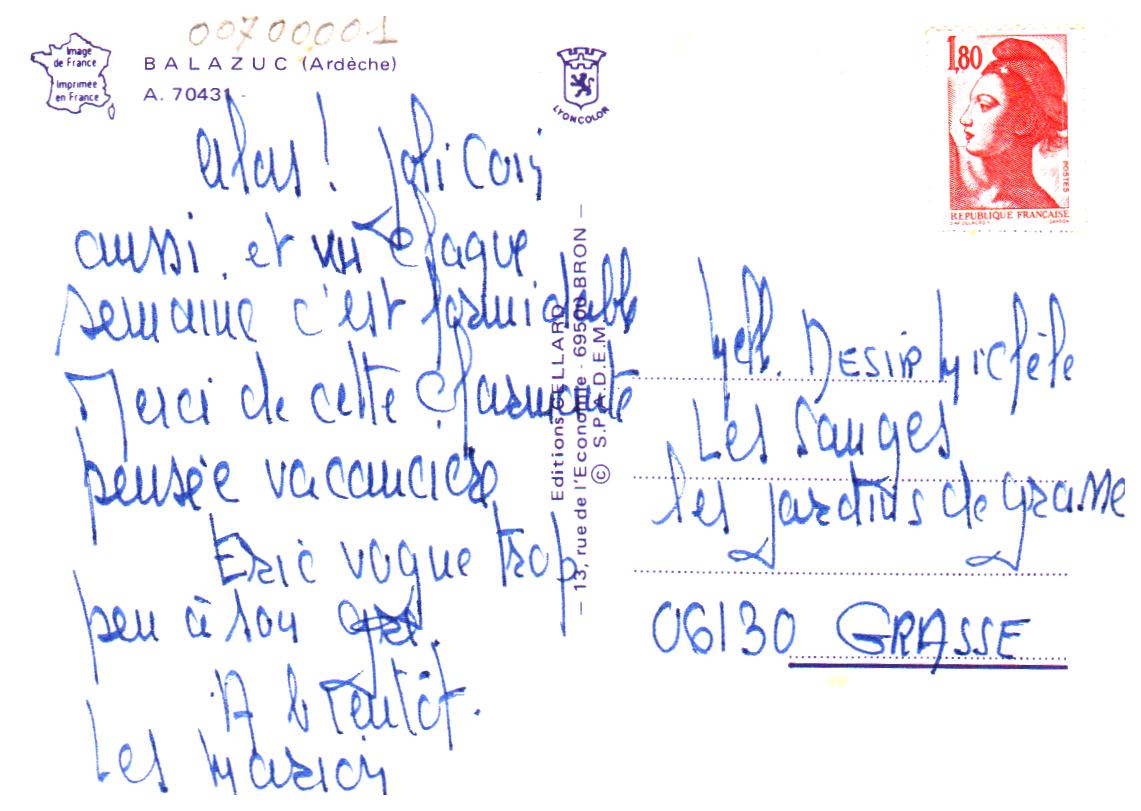 00700001
Image
de France
Imprimée
en France
BALAZUC (Ardèche)
A. 70431 -
LYONCOLOR
1,80
POSTES
REPUBLIQUE FRANÇAISE
alas ! Joli Coin
aussi, et vu chaque
semaine c'est formidable
Merci de cette charmante
pensée vacancière
Eric vogue trop
peu à son gré.
A bientôt.
Les Marion
Editions CELLARD
— 13, rue de l'Economie - 69500 BRON —
© S.P.A.D.E.M.
Melle. DESIR Michèle
Les Sauges
les jardins de Grasse
06130 GRASSE